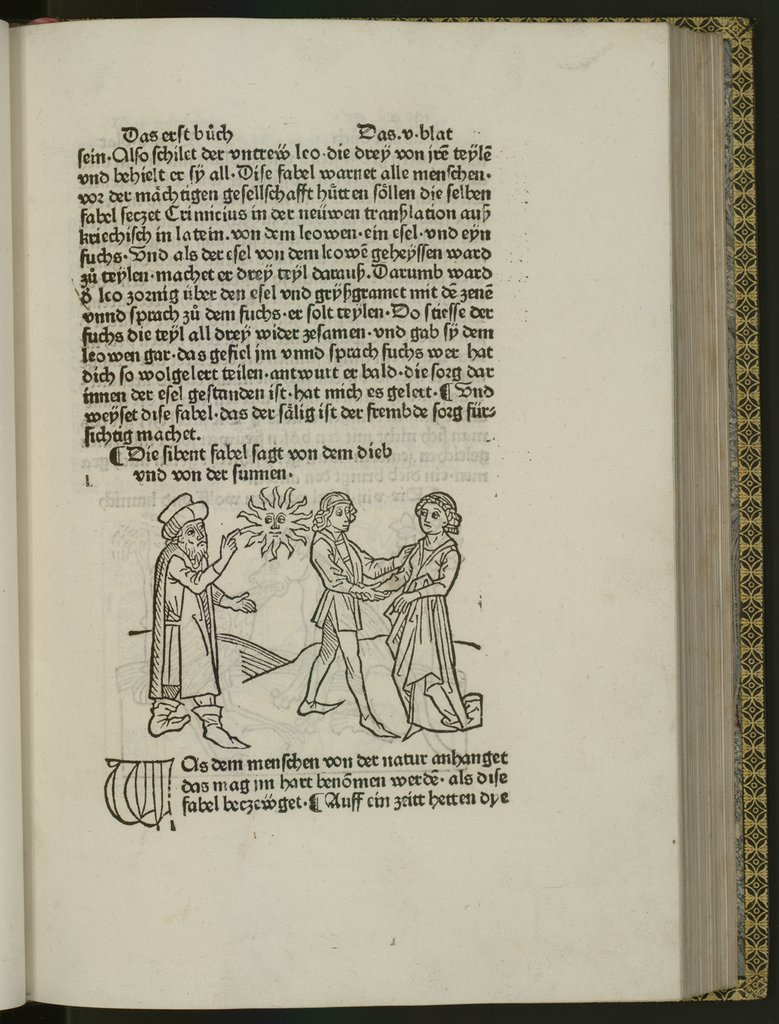 Das erst bůch Das.v.blat
sein.Also schilet der vntreẅ leo.die drey von jrē teylē
vnd behielt er sÿ all.Dise fabel warnet alle menschen.
vor der mächtigen gesellschafft hütten söllen die selben
fabel seczet Crimicius in der neüwen translation auß
kriechisch in latein.von dem leowen.ein esel.vnd eyn
fuchs.Vnd als der esel von dem leowē geheyssen ward
zů teylen.machet er drey teyl darauß.Darumb ward
d̕ leo zornig über den esel vnd gryßgramet mit dē zenē
vnnd sprach zů dem fuchs.er solt teylen.Do stiesse der
fuchs die teyl all drey wider zesamen.vnd gab sÿ dem
leowen gar.das gefiel jm vnnd sprach fuchs wer hat
dich so wolgelert teilen.antwurt er bald.die sorg dar
innen der esel gestanden ist.hat mich es gelert.¶Vnd
weyset dise fabel.das der sälig ist der frembde sorg für⸗
sichtig machet.
¶Die sibent fabel sagt von dem dieb
vnd von der sunnen.
WAs dem menschen von der natur anhanget
das mag jm hart benōmen werdē.als dise
fabel beczeẅget.¶Auff ein zeitt hetten dye